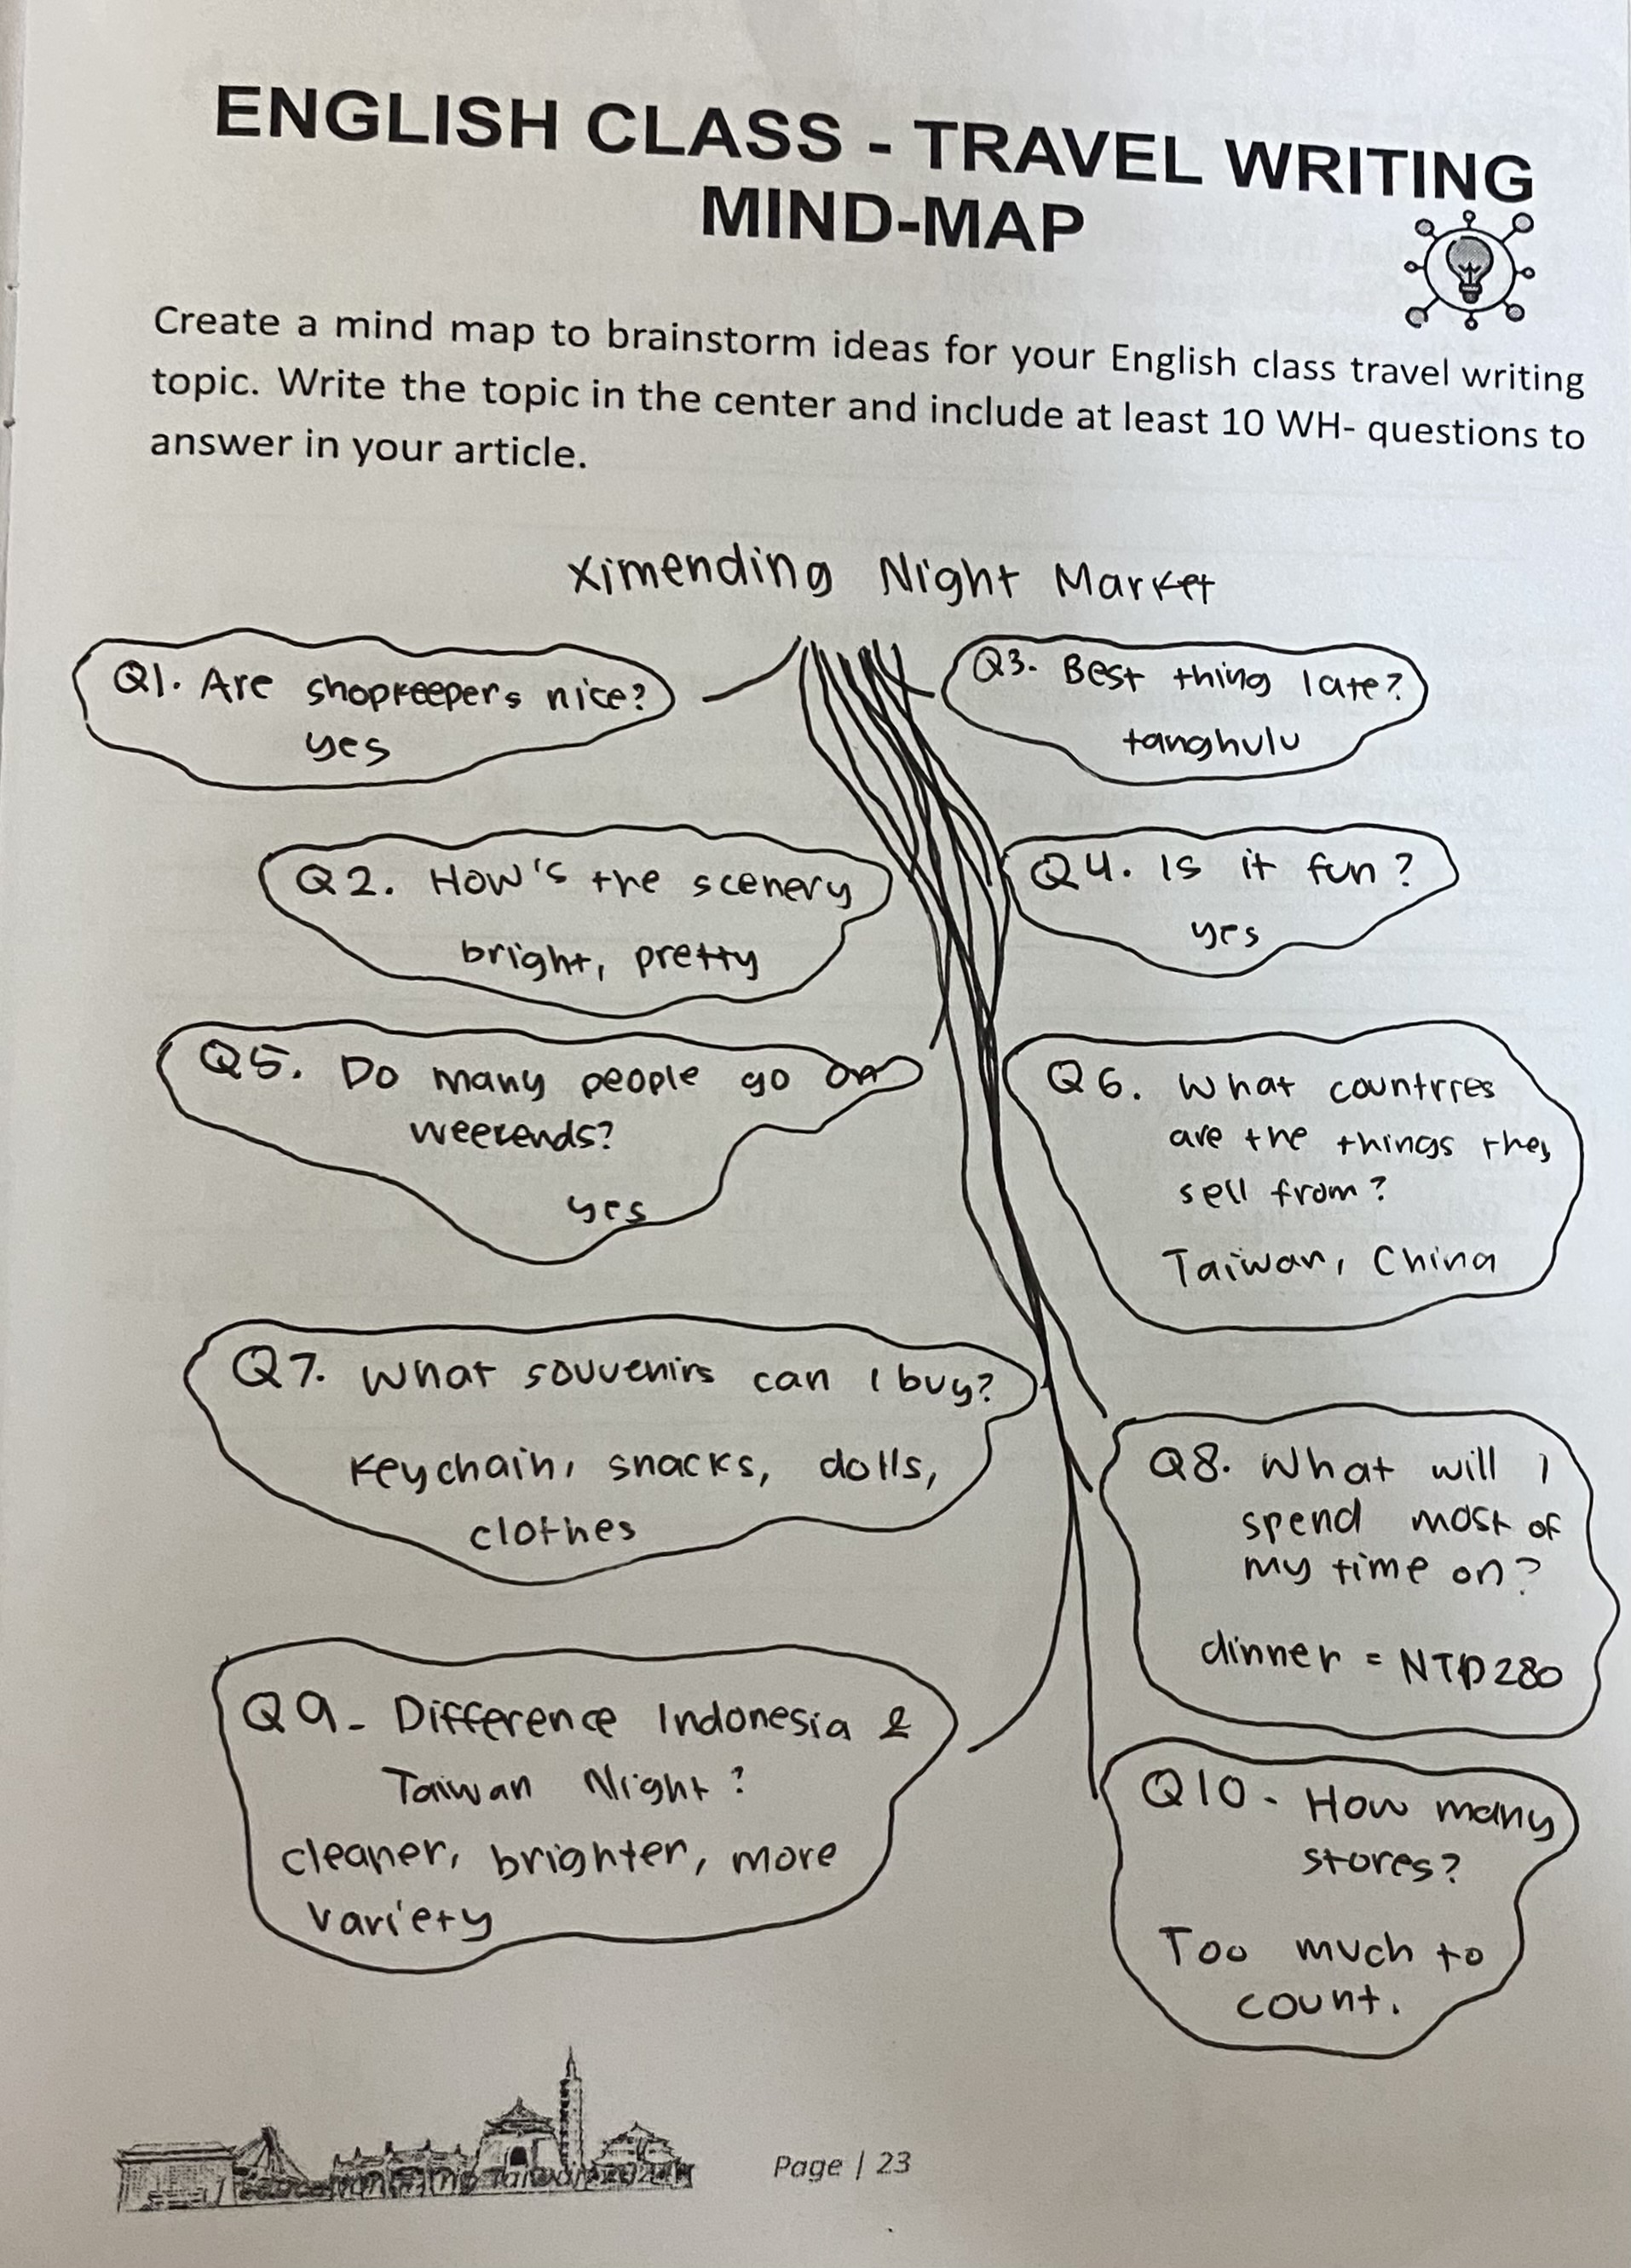 ENGLISH CLASS - TRAVEL WRITING
MIND-MAP
Create a mind map to brainstorm ideas for your English class travel writing
topic. Write the topic in the center and include at least 10 WH- questions to
answer in your article.
Ximending Night Market
Q1. Are shopkeepers nice?
yes
Q3. Best thing I ate?
tanghulu
Q2. How's the scenery
bright, pretty
Q4. Is it fun?
yes
Q5. Do many people go on
weekends?
yes
Q6. What countries
are the things they
sell from?
Taiwan, China
Q7. What souvenirs can I buy?
Keychain, snacks, dolls,
clothes
Q8. What will I
spend most of
my time on?
dinner = NTD280
Q9. Difference Indonesia &
Taiwan Night?
cleaner, brighter, more
variety
Q10. How many
stores?
Too much to
count.
Page | 23